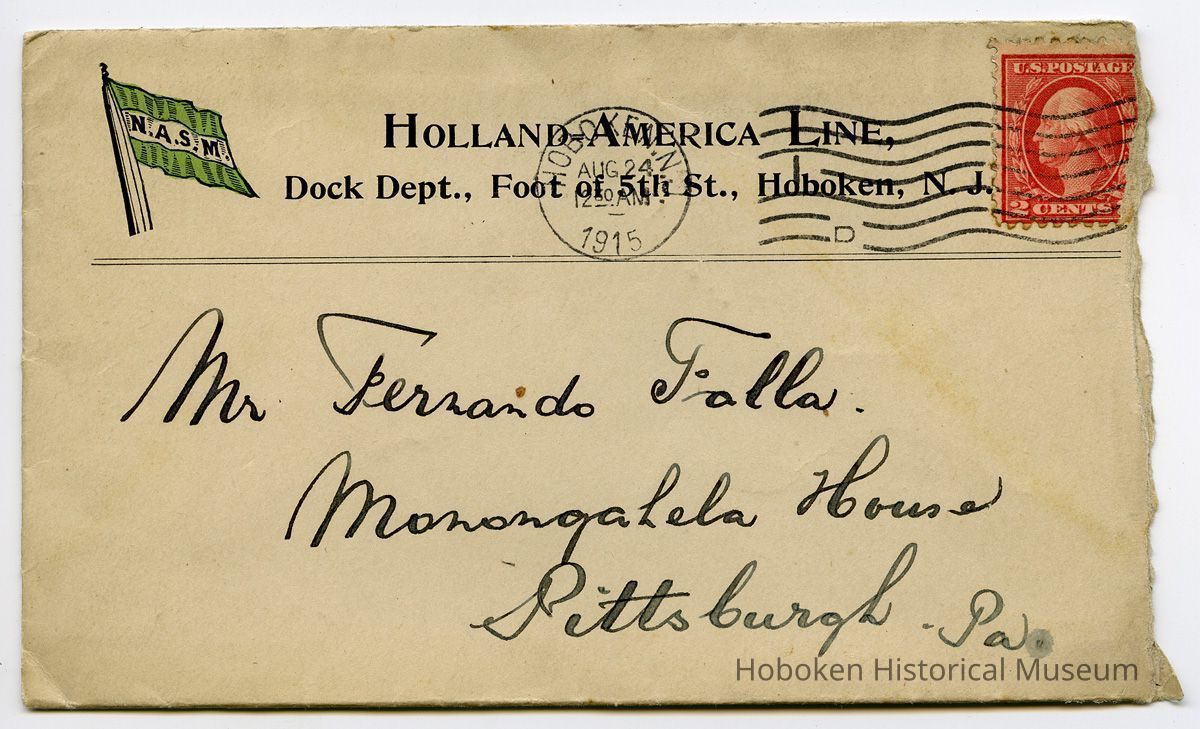 N.A.S.M.
HOLLAND-AMERICA LINE,
Dock Dept., Foot of 5th St., Hoboken, N. J.
HOBOKEN, N.J.
AUG 24
12 30 AM
1915
D
U.S. POSTAGE
2 CENTS 2
Mr Fernando Falla.
Monongahela House
Pittsburgh. Pa.
Hoboken Historical Museum